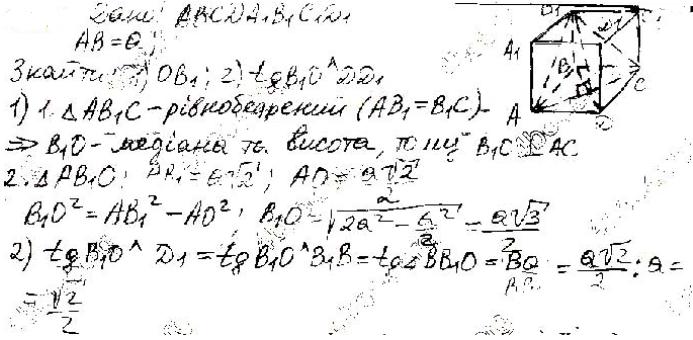 Дано: ABCDA₁B₁C₁D₁
AB = a;
Знайти: 1) OB₁; 2) tg B₁O^DD₁
1) 1. △AB₁C – рівнобедрений (AB₁ = B₁C) –
⇒ B₁O – медіана та висота, тому B₁C ⊥ AC
2. △AB₁O: AB₁ = a√2; AO = a√2/2
B₁O² = AB₁² – AO²; B₁O = √(2a² – a²/2) = a√3/2
2) tg B₁O^D₁ = tg B₁O^B₁B = tg∠BB₁O = BO/BB₁ = a√2/2 : a =
= √2/2
D₁
A₁
B
A
C